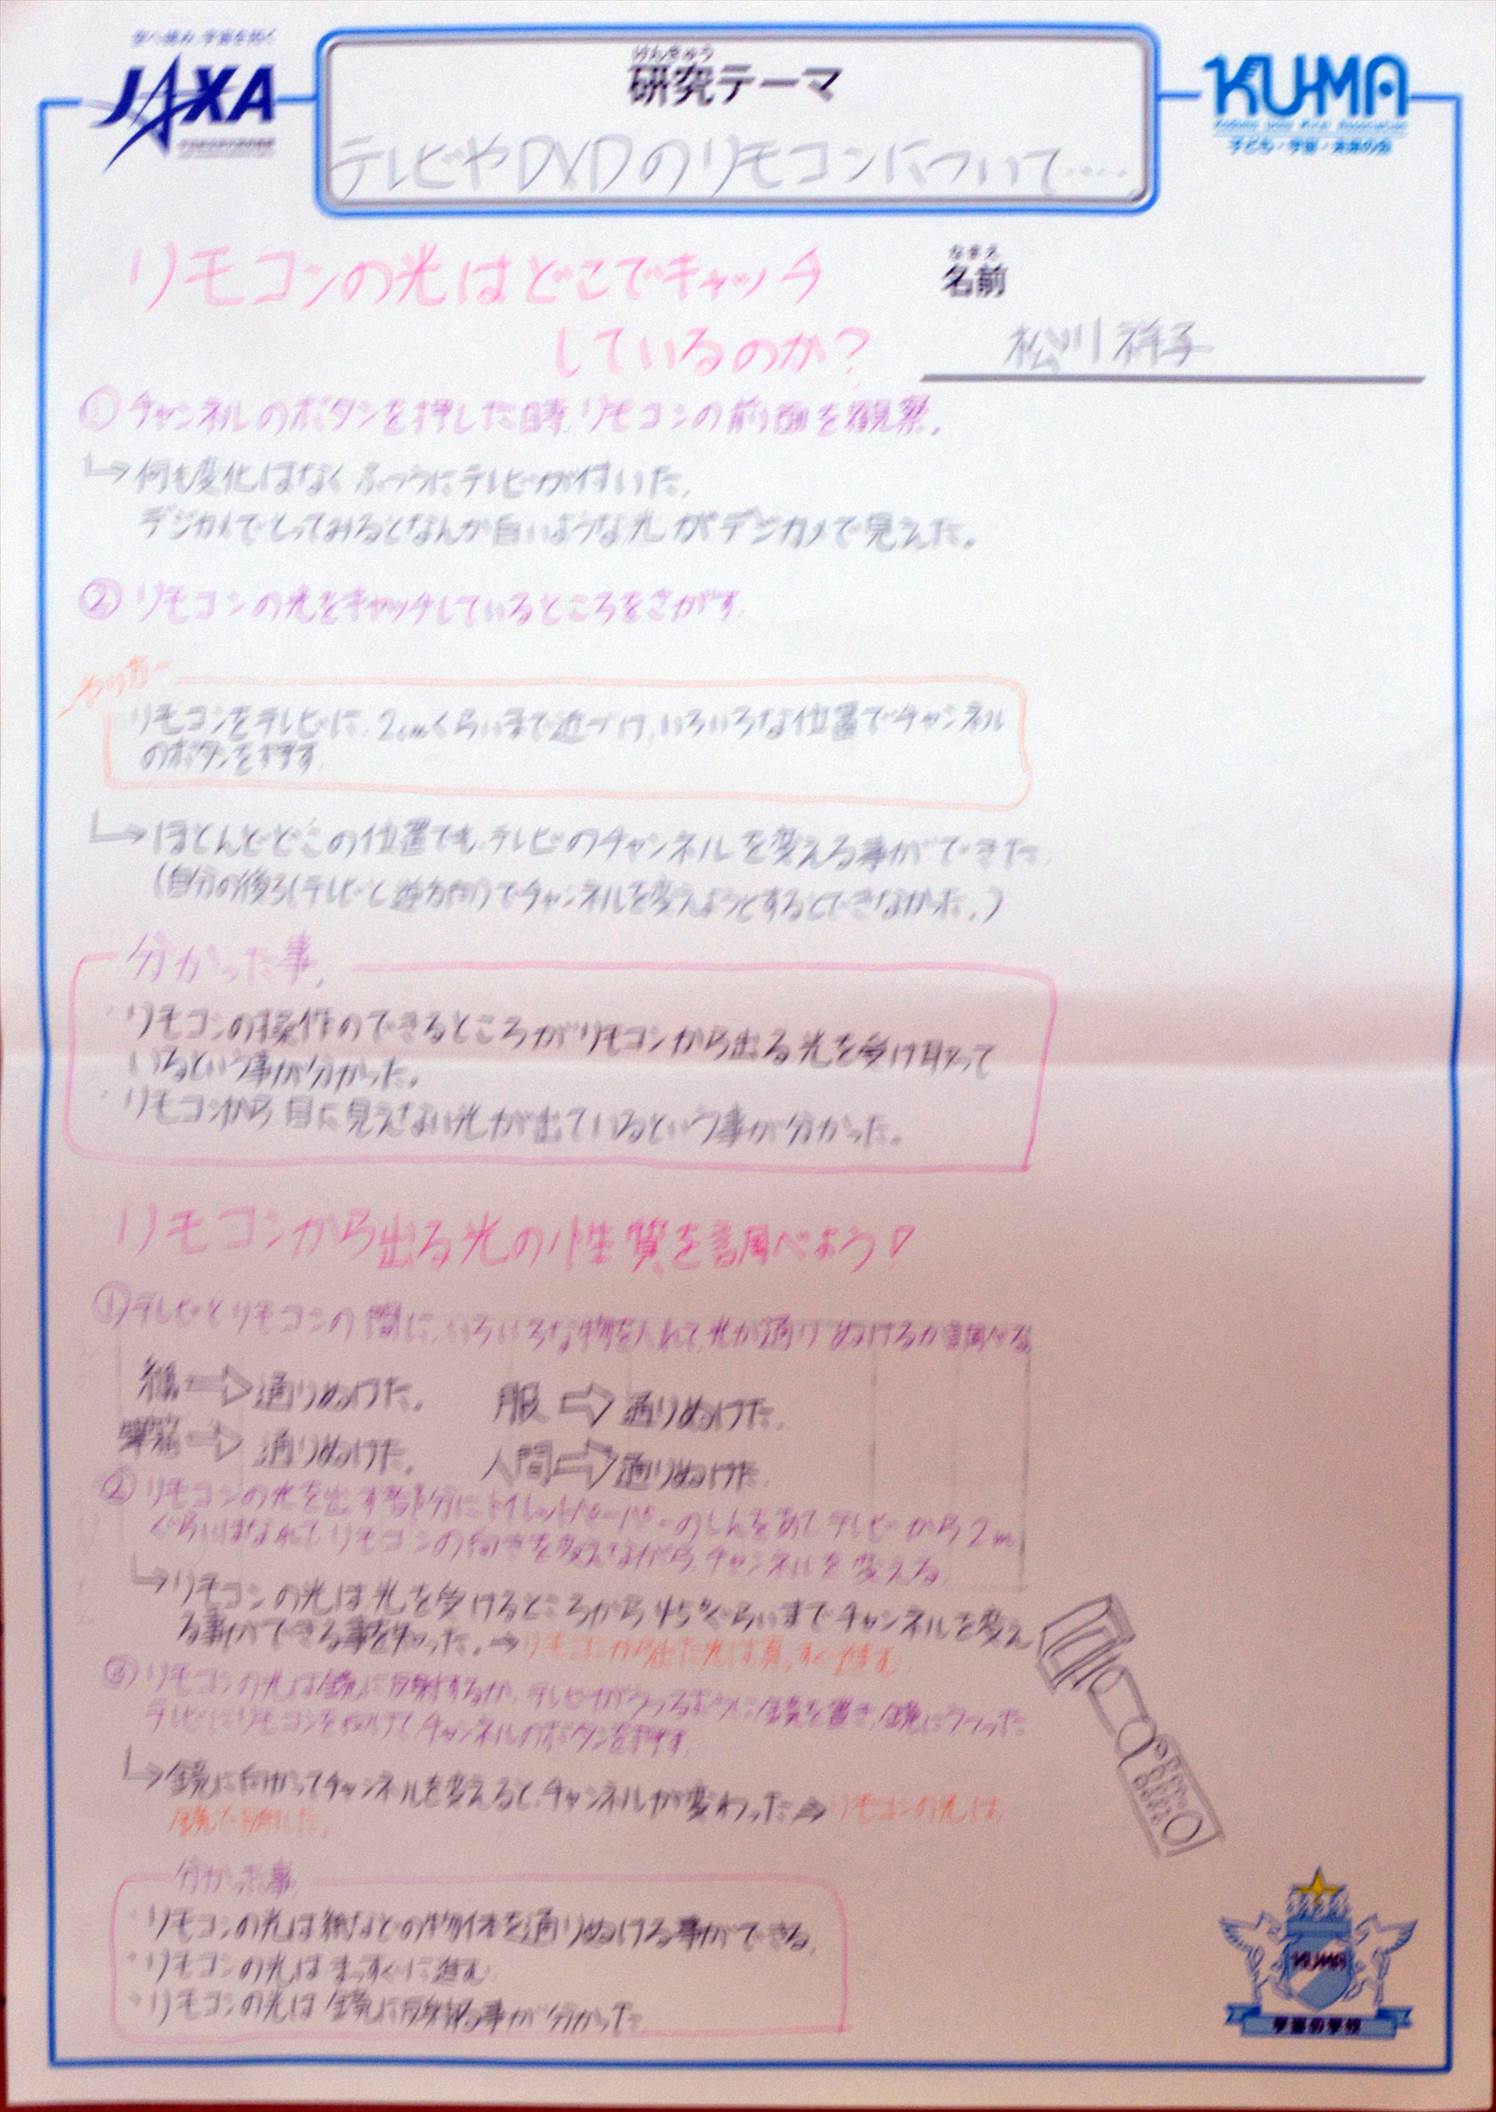 空へ挑み、宇宙を拓く
JAXA
けんきゅう
研究テーマ
テレビやDVDのリモコンについて‥‥.
KUMA
子ども・宇宙・未来の会
リモコンの光はどこでキャッチ
しているのか?
なまえ
名前
松川祥子
①チャンネルのボタンを押した時、リモコンの前面を観察。
↳何も変化はなくふつうにテレビが付いた。
デジカメでとってみるとなんか白いような光がデジカメで見えた。
②リモコンの光をキャッチしているところをさがす。
リモコンをテレビに、2cmくらいまで近づけ、いろいろな位置でチャンネル
のボタンをおす。
↳ほとんどどこの位置でも、テレビのチャンネルを変える事ができた。
(自分の後ろ(テレビと逆方向)でチャンネルを変えようとするとできなかった。)
分かった事。
・リモコンの操作のできるところがリモコンから出る光を受け取って
いるという事が分かった。
・リモコンから目に見えない光が出ているという事が分かった。
リモコンから出る光の性質を調べよう!
①テレビとリモコンの間に、いろいろな物を入れて、光が通りぬけるか調べる。
紙⇨通りぬけた。 服⇨通りぬけた。
⇨通りぬけた。 人間⇨通りぬけた。
②リモコンの光を出す部分にトイレットペーパーのしんをあてテレビから2m
ぐらいはなれて、リモコンの向きを変えながら、チャンネルを変える。
↳リモコンの光は光を受けるところから45°ぐらいまでチャンネルを変え
る事ができる事を知った。→リモコンから出た光は真っすぐ進む
③リモコンの光は鏡に反射するか、テレビがうつるように鏡を置き、鏡にうつった
テレビにリモコンを向けてチャンネルのボタンをおす。
↳鏡に向かってチャンネルを変えると、チャンネルが変わった⇒リモコンの光は
鏡で反射した。
分かった事
・リモコンの光は紙などの物体を通りぬける事ができる。
・リモコンの光はまっすぐに進む
・リモコンの光は鏡に反射する事が分かった
KUMA
宇宙の学校